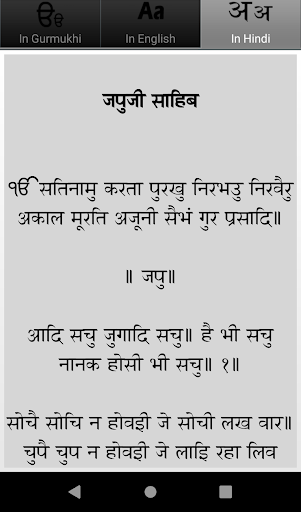 ੴ Aa अ अ
In Gurmukhi In English In Hindi
जपुजी साहिब
ੴ सतिनामु करता पुरखु निरभउ निरवैरु
अकाल मूरति अजूनी सैभं गुर प्रसादि॥
॥ जपु॥
आदि सचु जुगादि सचु॥ है भी सचु
नानक होसी भी सचु॥ १॥
सोचै सोचि न होवई जे सोची लख वार॥
चुपै चुप न होवई जे लाइ रहा लिव